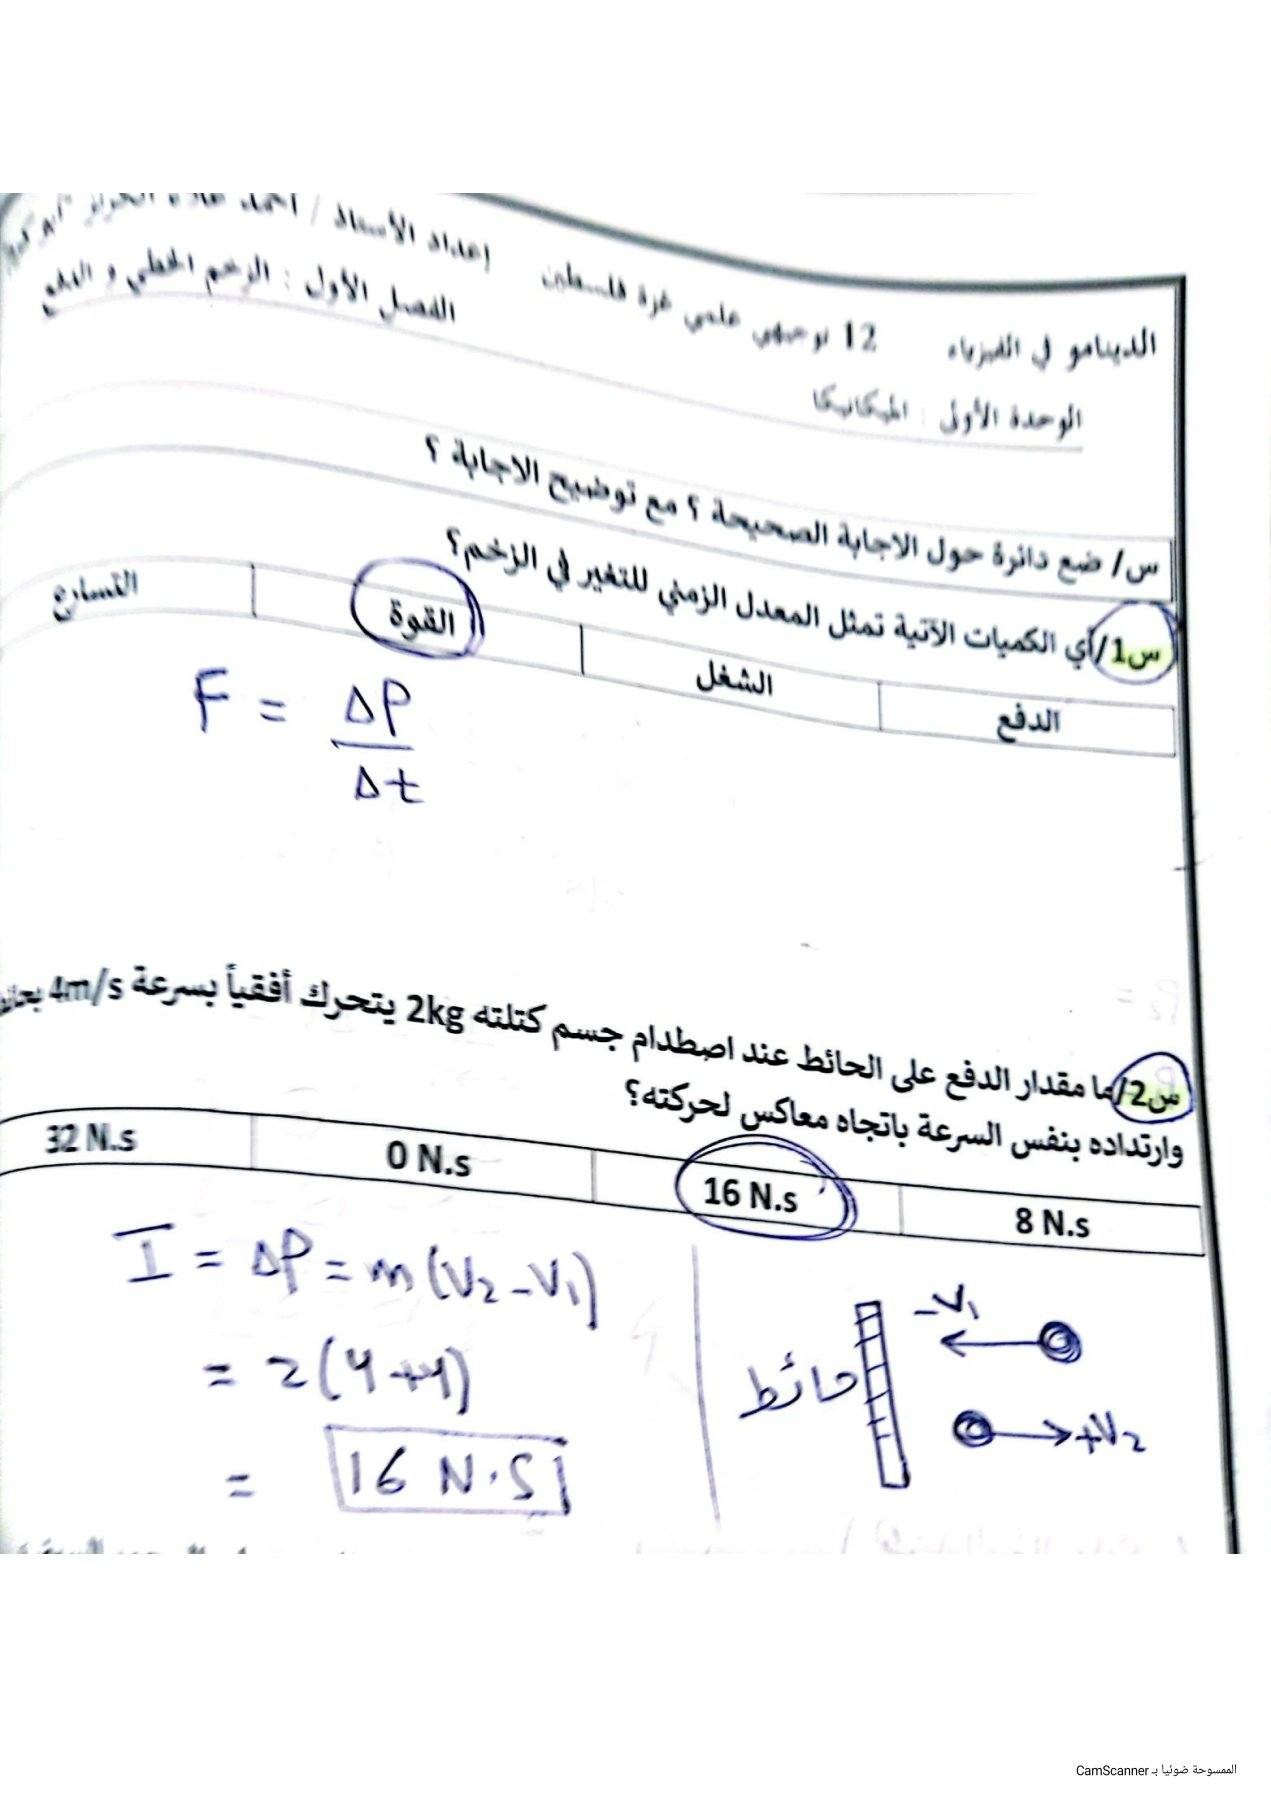 الدينامو في الفيزياء 12 توجيهي علمي غزة فلسطين إعداد الأستاذ / أحمد
الوحدة الأولى : الميكانيكا الفصل الأول : الزخم الخطي و الدفع
س/ ضع دائرة حول الاجابة الصحيحة ؟ مع توضيح الاجابة ؟
س1/أي الكميات الآتية تمثل المعدل الزمني للتغير في الزخم؟
الدفع الشغل القوة التسارع
F = ΔP
Δt
س2/ما مقدار الدفع على الحائط عند اصطدام جسم كتلته 2kg يتحرك أفقياً بسرعة 4m/s
وارتداده بنفس السرعة باتجاه معاكس لحركته؟
8 N.s 16 N.s 0 N.s 32 N.s
I = ΔP = m(V2 - V1)
= 2(4+4)
= 16 N.S
-V1
حائط
+V2
الممسوحة ضوئيا بـ CamScanner